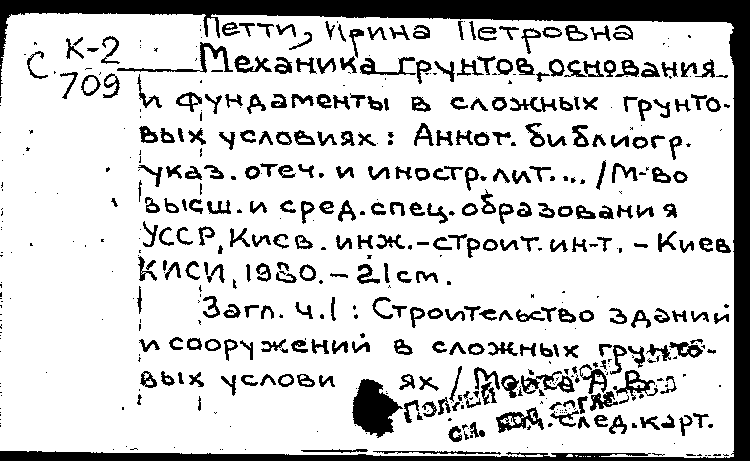 Петти, Ирина Петровна
С К-2
709
Механика грунтов, основания
и фундаменты в сложных грунто-
вых условиях: Аннот. библиогр.
указ. отеч. и иностр. лит... /М-во
высш. и сред. спец. образования
УССР, Киев. инж.-строит. ин-т. - Киев
КИСИ, 1980. - 21 см.
Загл. ч.1: Строительство зданий
и сооружений в сложных грунто-
вых услови ях /
Полный
см. под заглавием
см. след. карт.